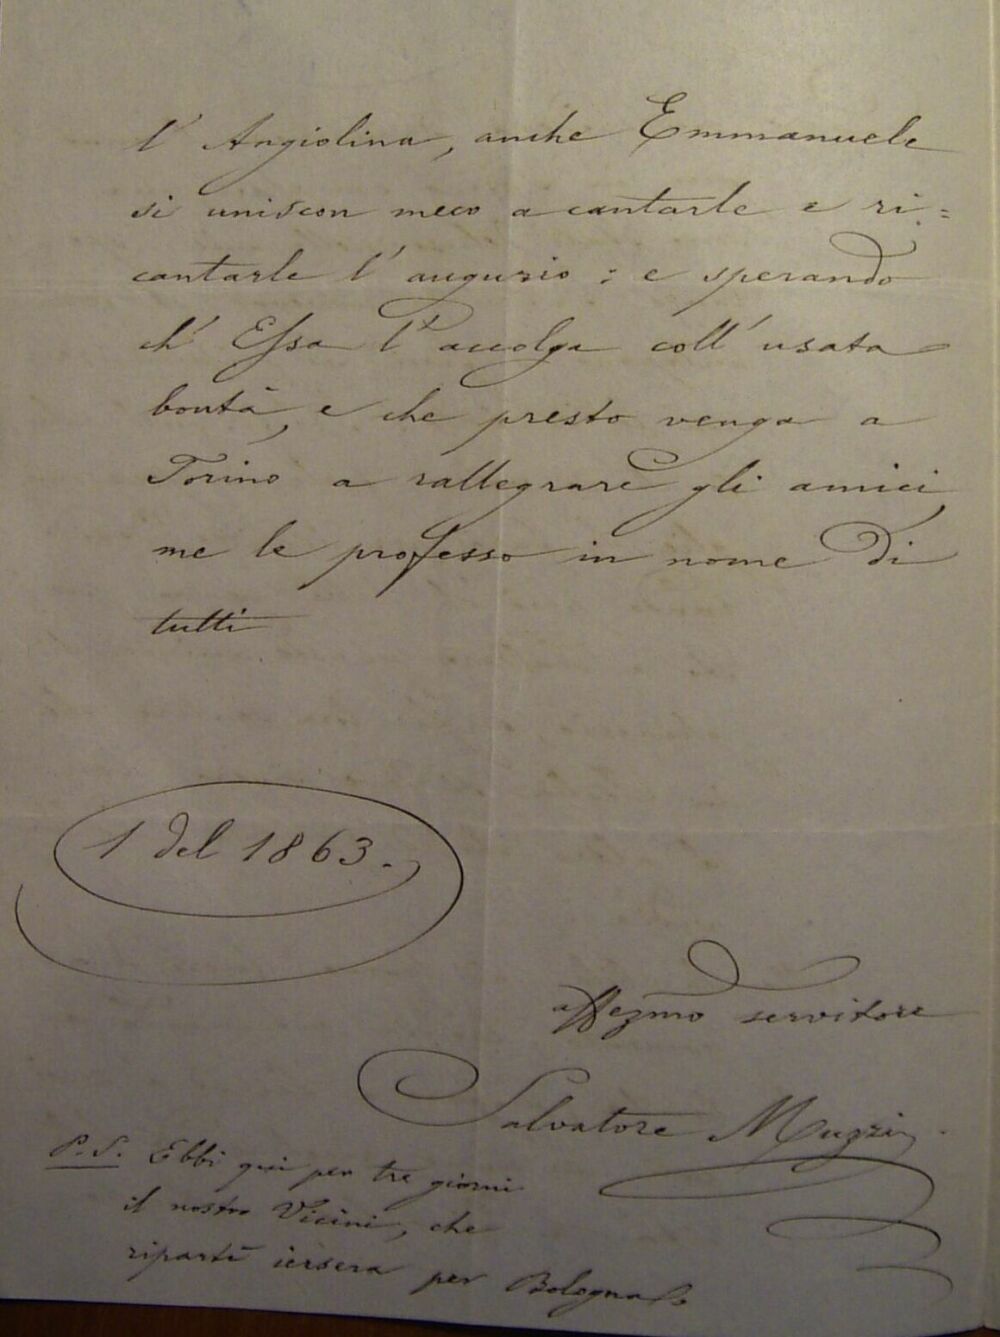 l' Angiolina, anche Emmanuele
si uniscon meco a cantarle e ri=
cantarle l' augurio; e sperando
ch' Essa l' accolga coll' usata
bontà, e che presto venga a
Torino a rallegrare gli amici,
me le professo in nome di
tutti
1 del 1863.
affezmo servitore
Salvatore Muzzi
P.S. Ebbi qui per tre giorni
il nostro Vicini, che
ripartì iersera per Bologna